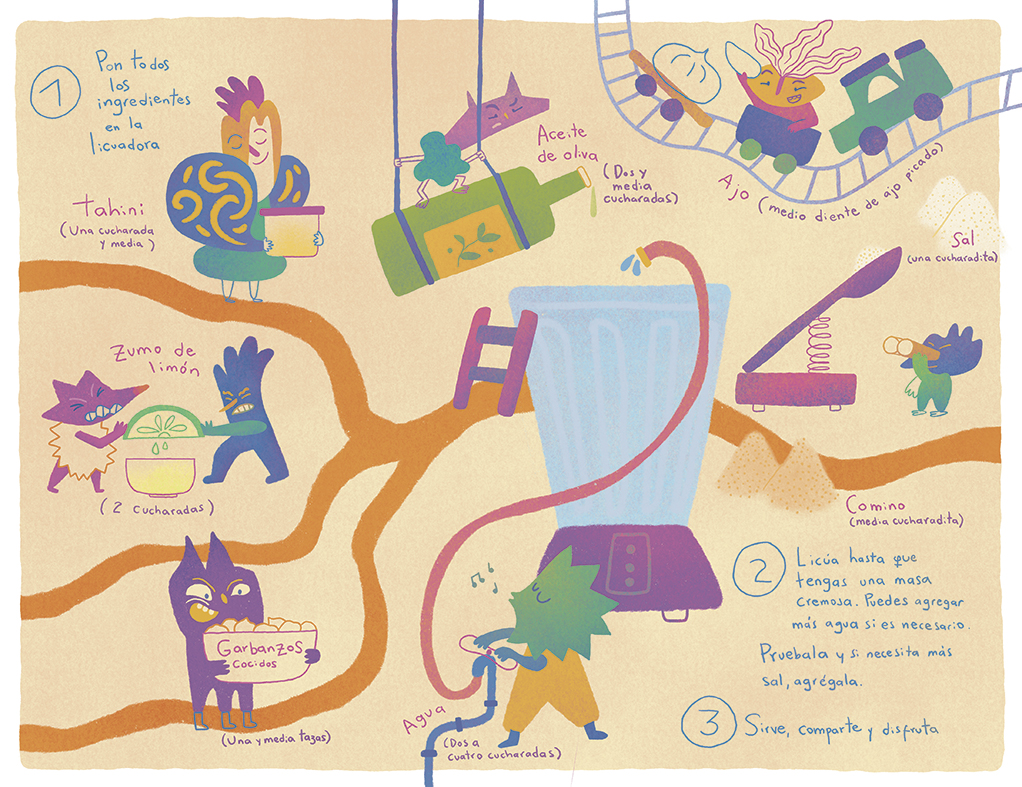 1
Pon todos
los
ingredientes
en la
licuadora
Tahini
(Una cucharada
y media)
Aceite
de oliva
(Dos y
media
cucharadas)
Ajo (medio diente de ajo picado)
Sal
(una cucharadita)
Zumo de
limón
(2 cucharadas)
Comino
(media cucharadita)
Garbanzos
Cocidos
(Una y media tazas)
Agua
(Dos a
cuatro cucharadas)
2
Licúa hasta que
tengas una masa
cremosa. Puedes agregar
más agua si es necesario.
Pruebala y si necesita más
sal, agrégala.
3
Sirve, comparte y disfruta